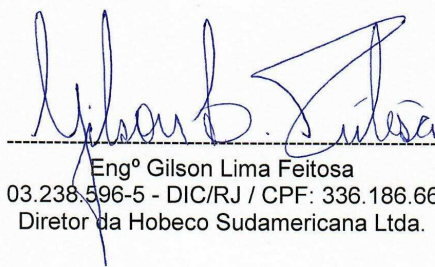 Gilson L. Feitosa
Engº Gilson Lima Feitosa
03.238.596-5 - DIC/RJ / CPF: 336.186.66
Diretor da Hobeco Sudamericana Ltda.